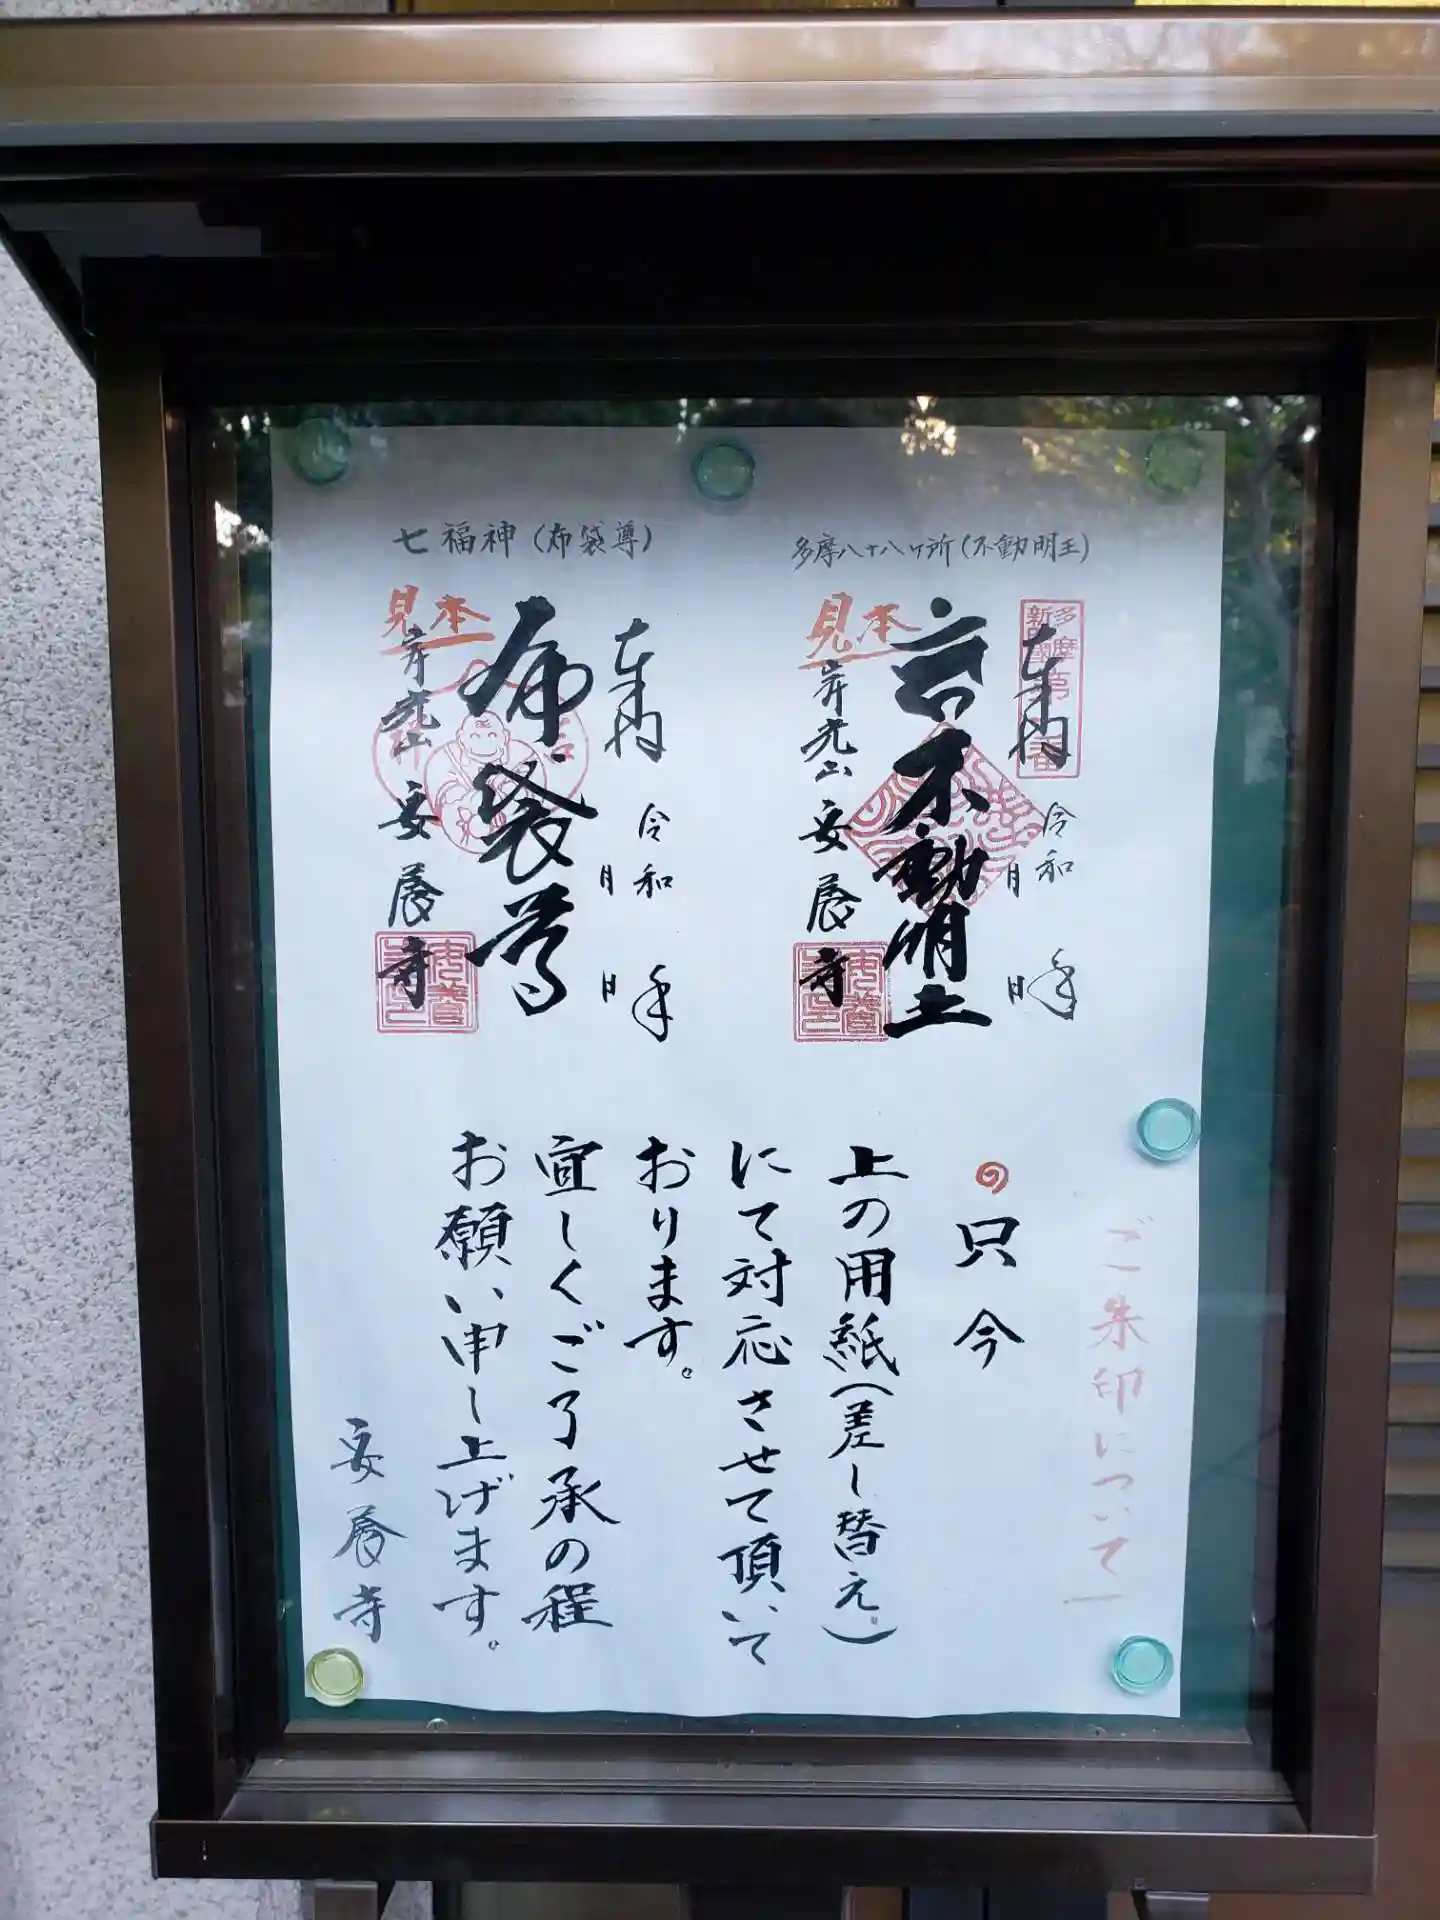 多摩八十八ヶ所(不動明王)
見本
奉納
令和 年
月 日
不動明王
安養寺
七福神(布袋尊)
見本
奉納
令和 年
月 日
布袋尊
安養寺
ご朱印について
只今
上の用紙(差し替え。)
にて対応させて頂いて
おります。
宜しくご了承の程
お願い申し上げます。
安養寺